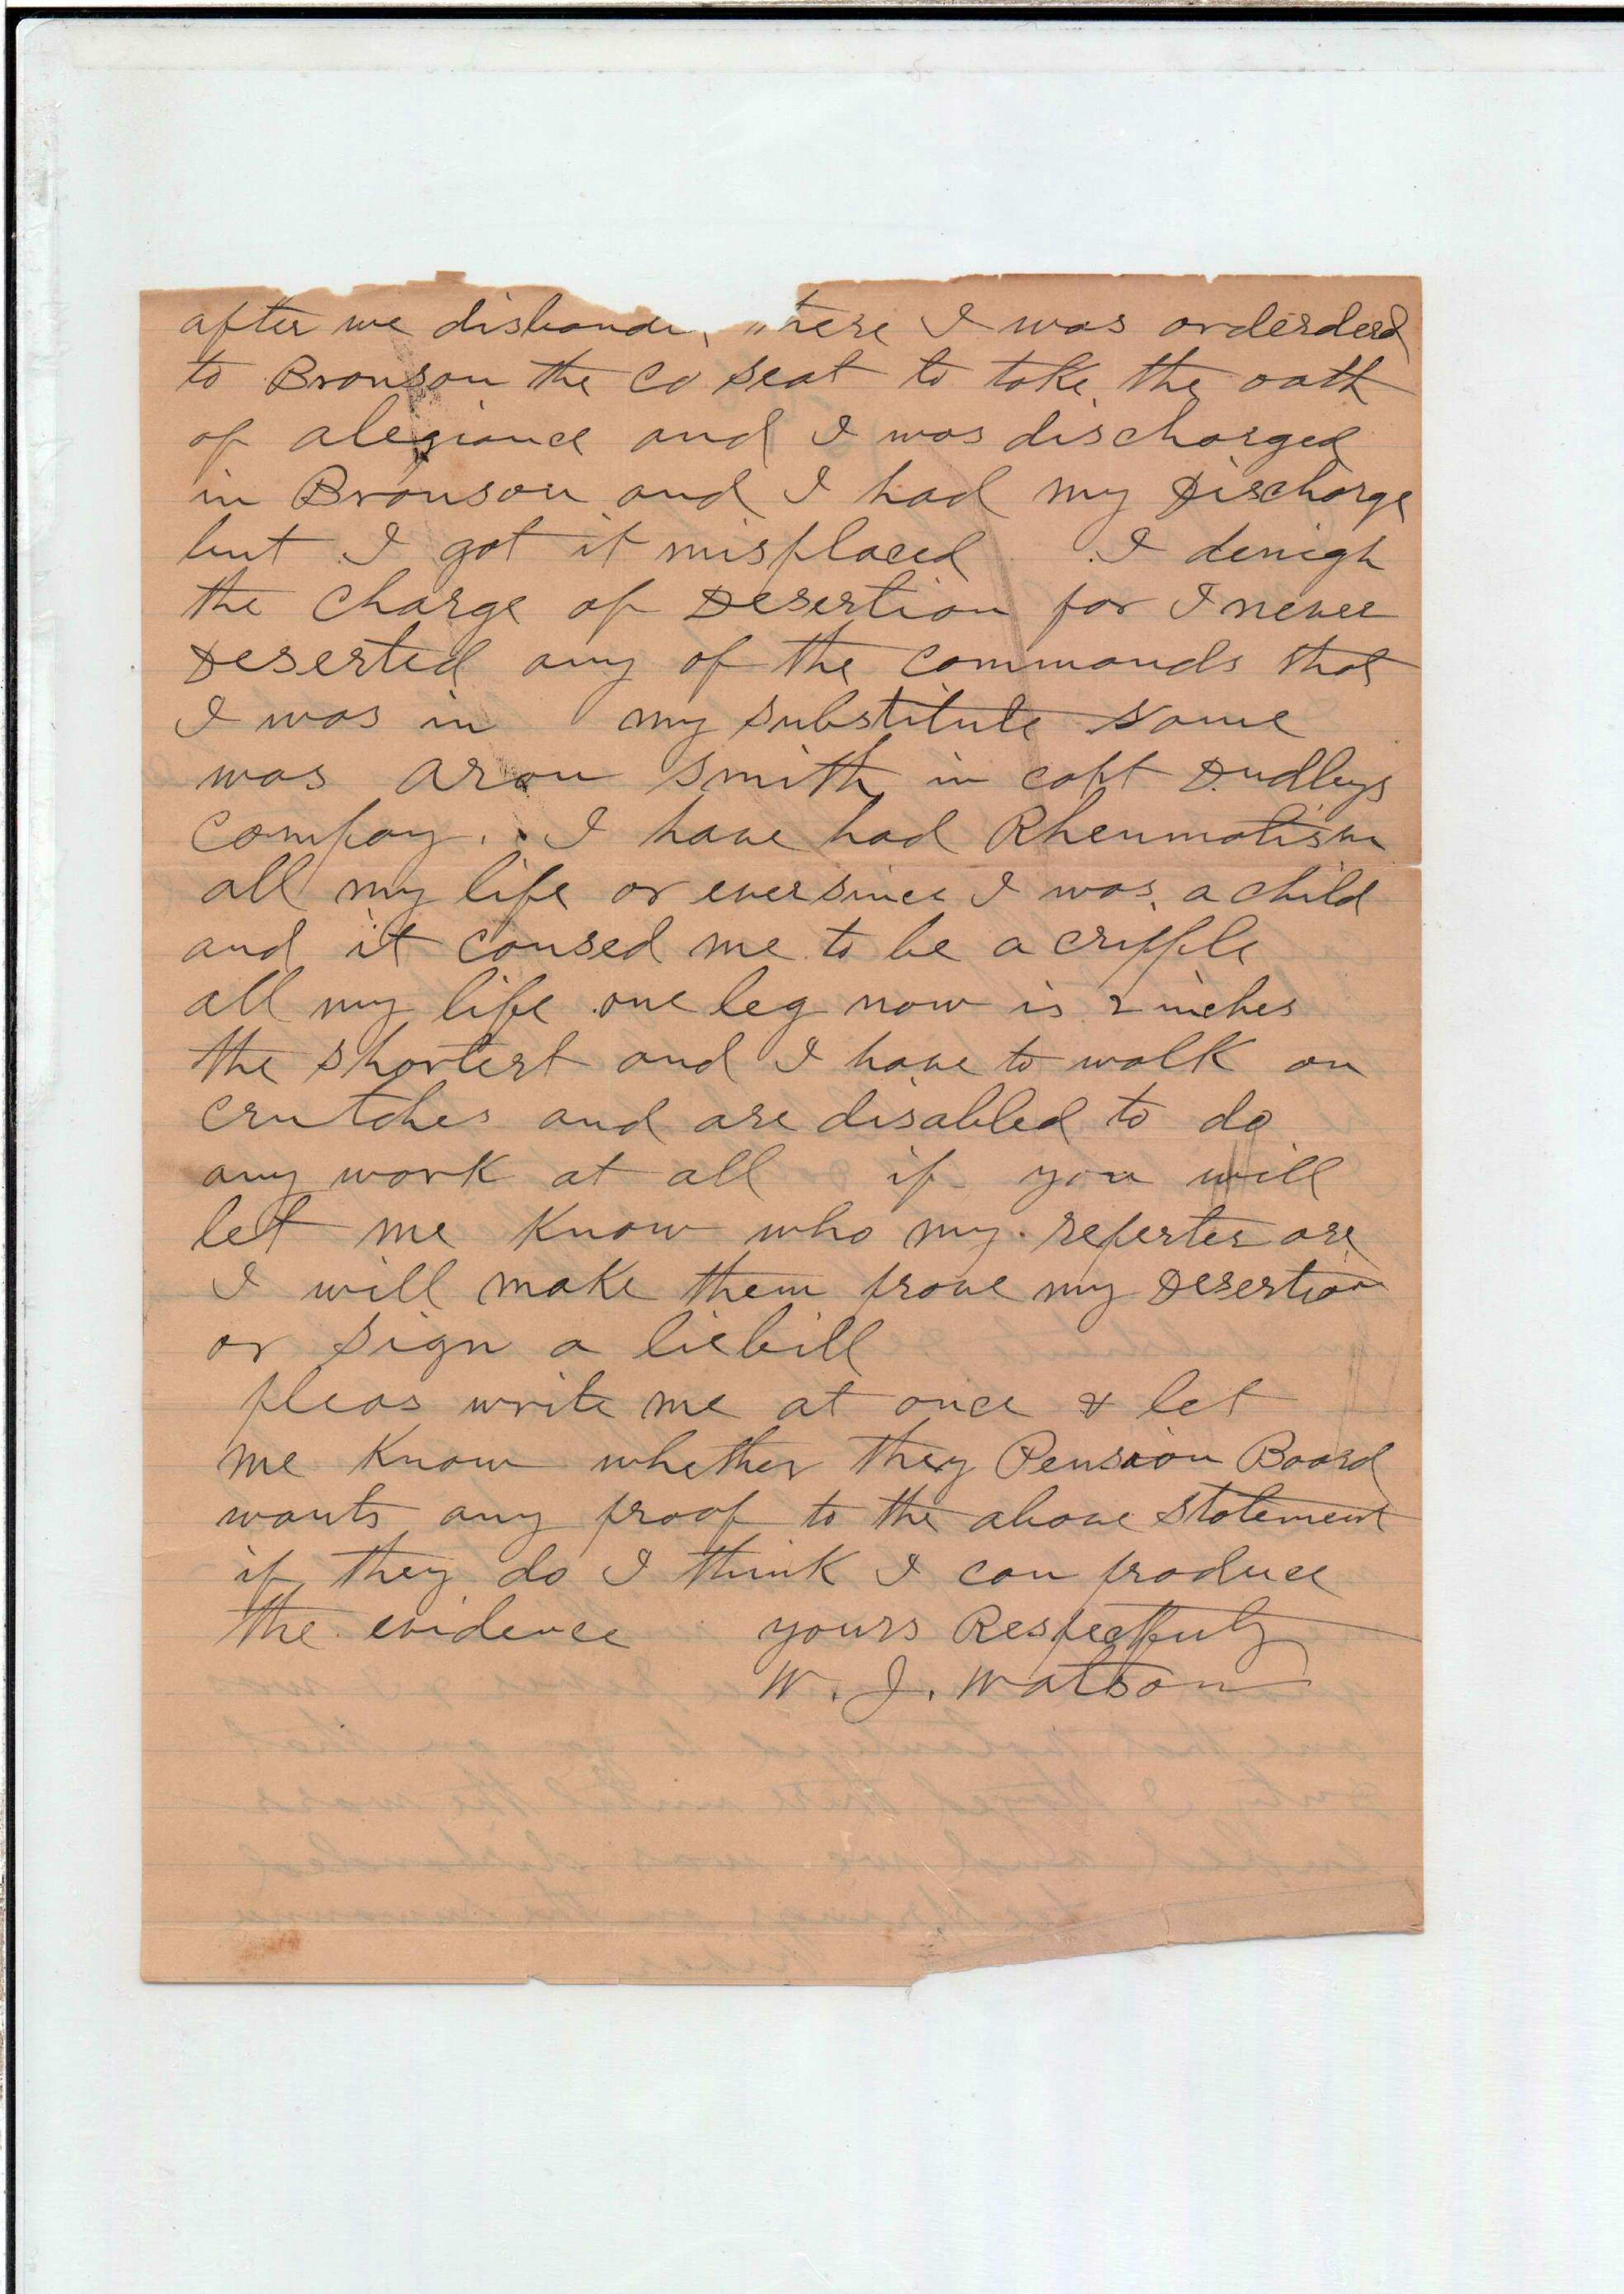 after we disbande there I was orderderd
to Bronson the co seat to take the oath
of alegiance and I was discharged
in Bronson and I had my Discharge
but I got it misplaced I denigh
the charge of Desertion for I never
Deserted any of the commands that
I was in my substitute name
was aron smith in capt Dudleys
Compay. I have had Rheumatism
all my life or ever since I was a child
and it caused me to be a cripple
all my life one leg now is 2 inches
the shortest and I have to walk on
crutches and are disabled to do
any work at all if you will
let me know who my reperter are
I will make them prove my Desertion
or sign a liebill
pleas write me at once & let
me know whether they Pension Board
wants any proof to the above statement
if they do I think I can produce
the evidence yours Respectfuly
W. J. Watson